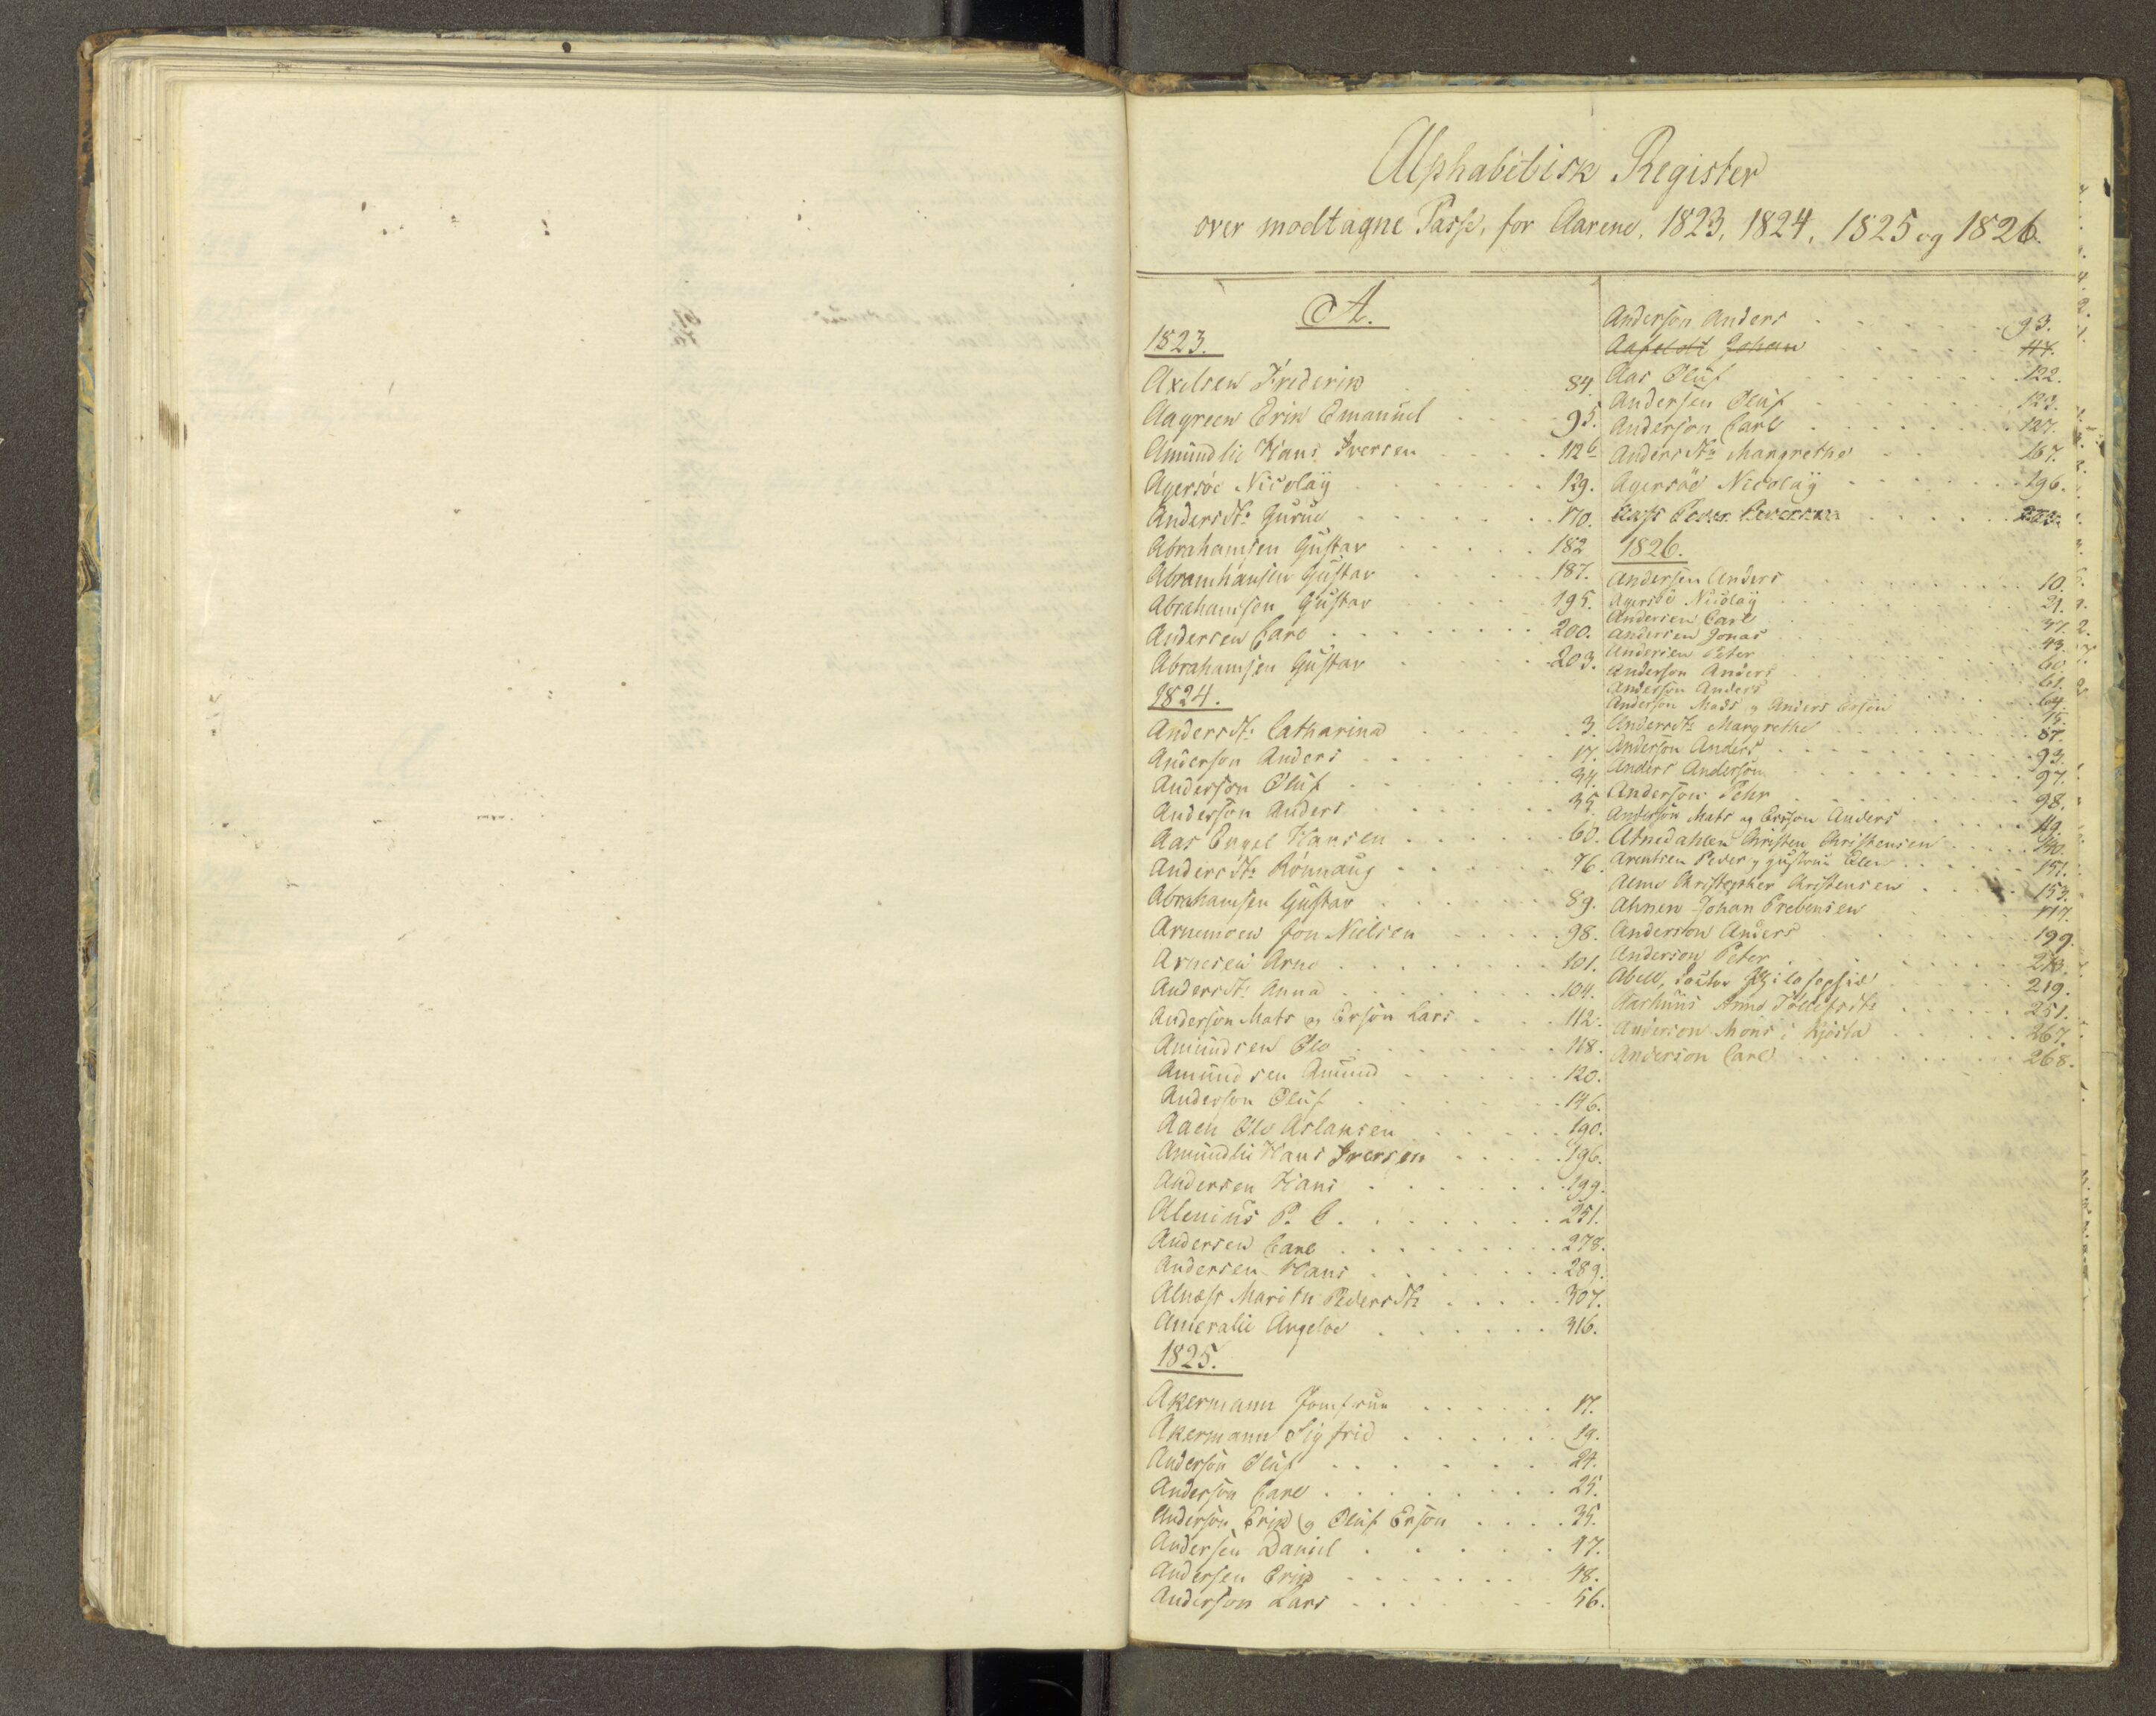 Alphabetisk Register
over modtagne Passe, for Aarene, 1823, 1824, 1825 og 1826.
A.
1823.
Axelsen Frederik 84.
Aagreen Erik Emanuel 95.
Amundlie Hans Iversen 112 b
Agersöe Nicolaÿ 129.
Andersdtr Gurue 170.
Abrahamsen Gustav 182
Abramhansen Gustav 187.
Abrahamsen Gustav 195.
Andersen Carl 200.
Abrahamsen Gustav 203.
1824.
Andersdtr Catharina 3.
Anderson Anders 17.
Anderson Oluf 34.
Anderson Anders 35
Aas Engel Hansen 60.
Andersdtr Rönnaug 76.
Abrahamsen Gustav 89.
Arnemoen Jon Nielsen 98.
Arnesen Arne 101.
Andersdtr Anna 104.
Anderson Mats og Erson Lars 112.
Amundsen Ole 118.
Amundsen Amund 120.
Anderson Oluf 146.
Aaen Ole Aslaksen 190.
Amundlie Hans Iversen 196.
Andersen Hans 199.
Alenius P. C. 251.
Andersen Carl 278.
Andersen Hans 289.
Alnæss Marithe Pedersdtr 307.
Ameralie Angeloe 316.
1825.
Akermann Jomfrue 17.
Akermann Sigfrid 19.
Anderson Oluf 24.
Anderson Carl 25.
Anderson Erik og Oluf Erson 35.
Andersen Daniel 47.
Andersen Erik 48.
Anderson Lars 56.
Anderson Anders 93.
Johan 117.
Aas Oluf 122.
Andersen Oluf 123.
Anderson Carl 127.
Andersdtr Mangrethe 167.
Agersöe Nicolaÿ 196.
Aass Peder Pedersen
1826.
Andersen Anders 10.
Agersöe Nicolaÿ 21.
Andersen Carl 37.
Andersen Jonas 43.
Andersen Peter 60.
Anderson Anders 61.
Anderson Anders 64.
Anderson Mads og Anders Erson 75.
Andersdtr Margrethe 87.
Anderson Anders 93.
Anders Anderson 97.
Anderson Pehr 98.
Anderson Mats og Ersson Anders 119.
Atnedahlen Christen Christensen 140.
Arentsen Peder og Hustrue Elen 151.
Alme Christopher Christensen 153.
Ahnen Johan Prebensen 177.
Anderson Anders 199.
Anderson Peter 213.
Abell, Doctor Philosophie 219.
Aarhuus Anne Tollefsdtr 251.
Anderson Mons i Kjösta 267.
Anderson Carl 268.